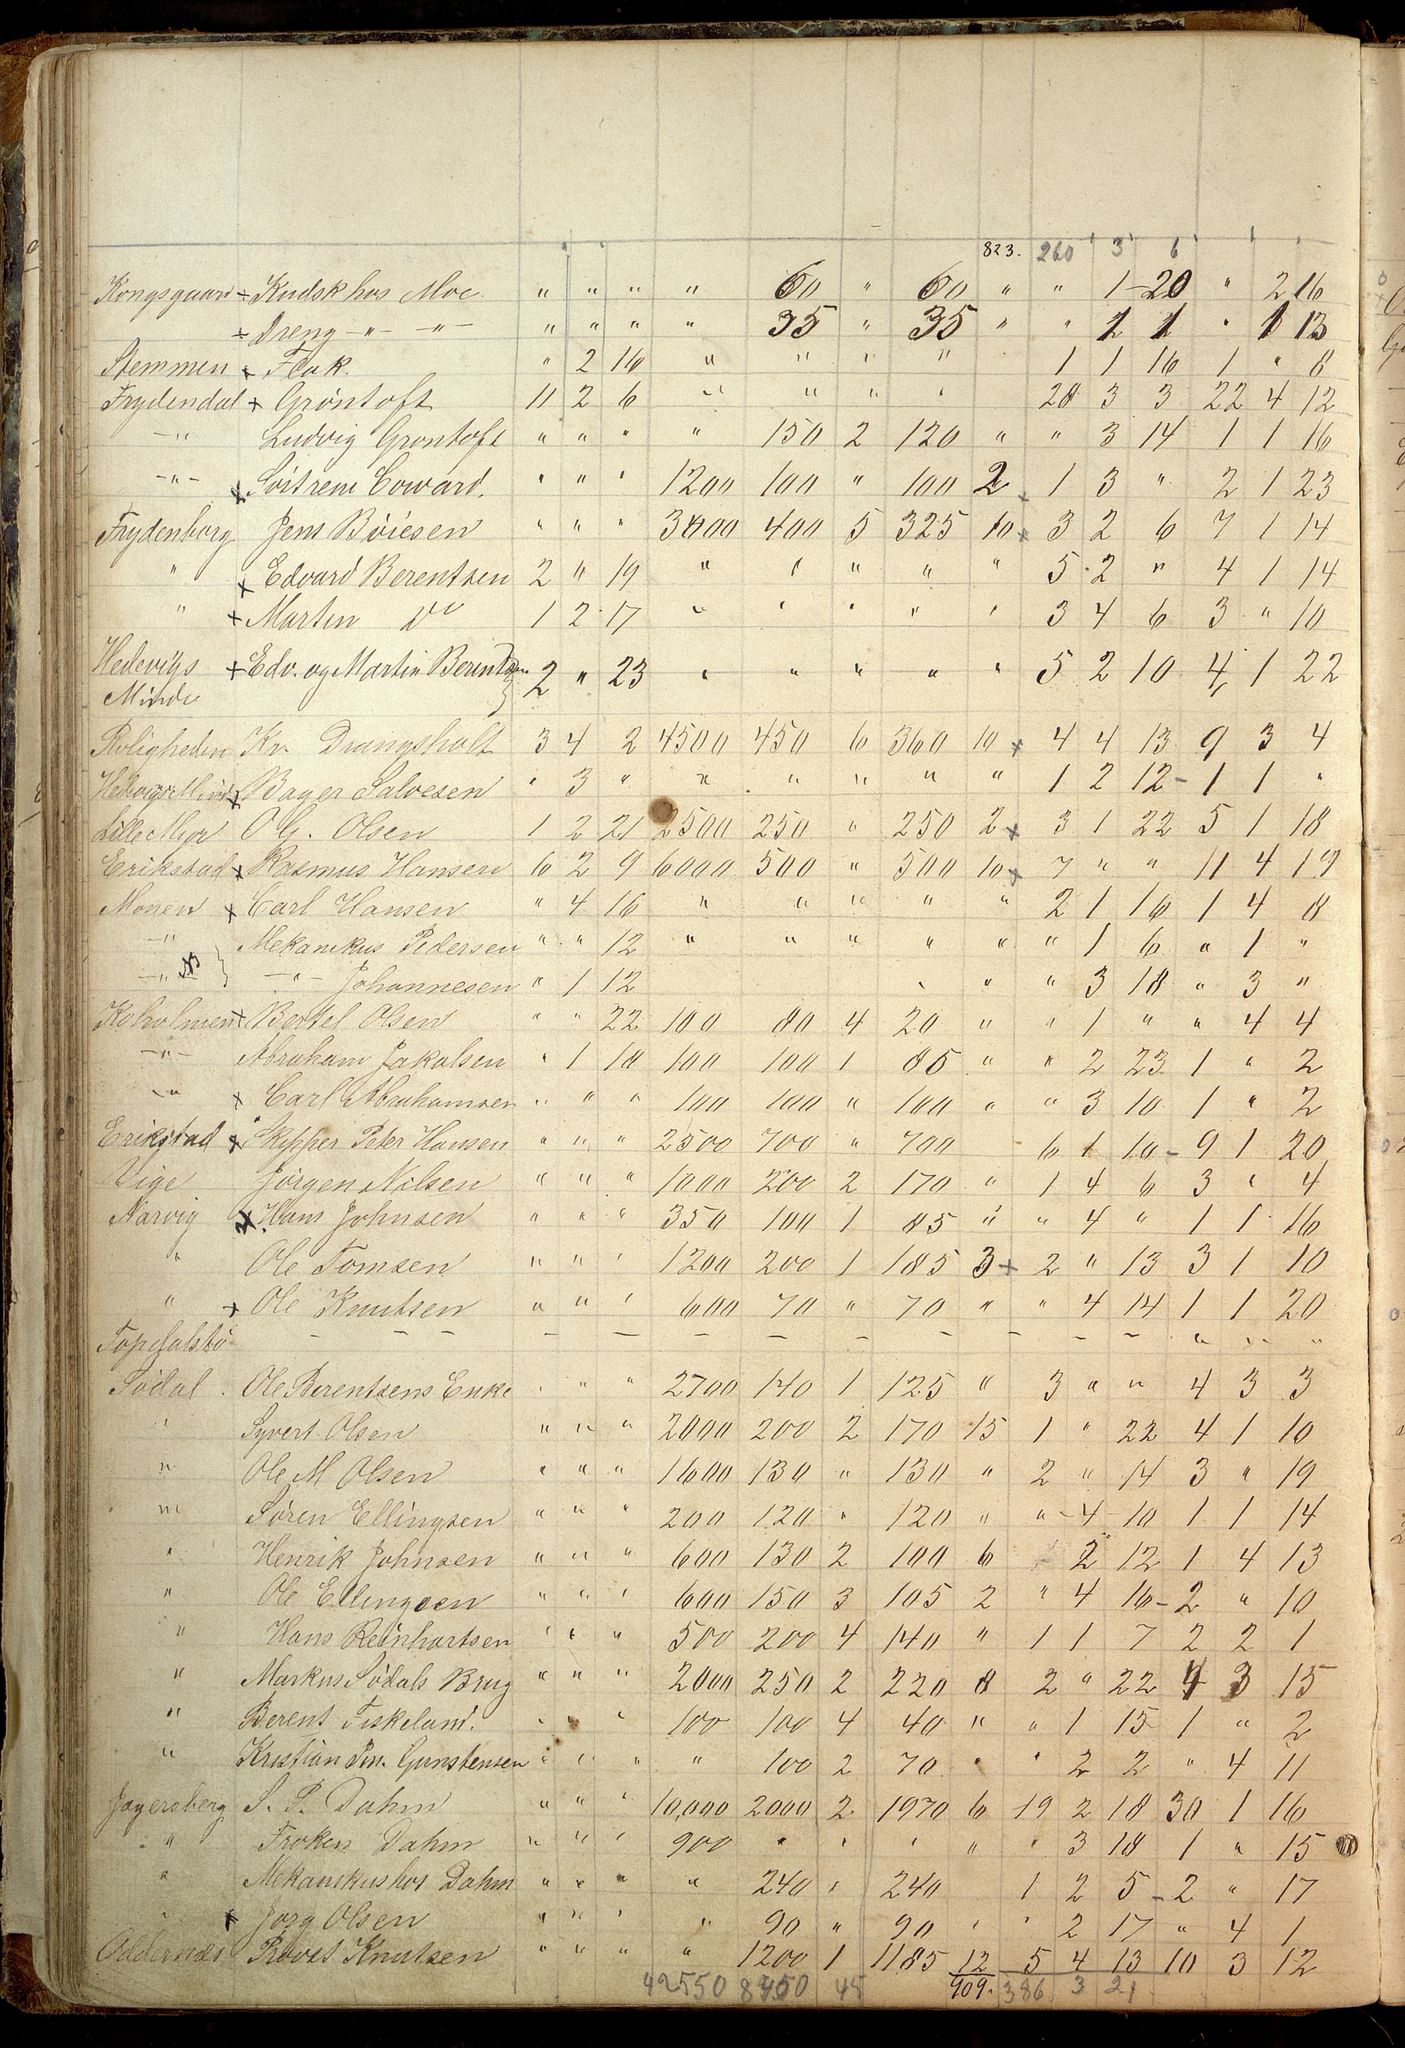 823. 260 3 6
Kongsgaard - Kudsk hos Moe " " " " 60 " 60 " " 1 - 20 " 2 16
x Dreng -"- -"- " " " " 35 " 35 " " 2 1 " 1 13
Stemmen x Flak. " 2 16 " " " " 1 1 16 1 " 8
Frydendal x Grøntoft 11 2 6 " " " " 28 3 3 22 4 12
-"- Ludvig Grøntoft " " " " 150 2 120 " " 3 14 1 1 16
-"- x Coward. " " " 1200 100 " 100 2 1 3 " 2 1 23
Frydenborg Jens Bøiesen " " " 3000 400 5 325 10 x 3 2 6 7 1 14
" x Edvard Berentsen 2 " 19 " " " " " 5 2 " 4 1 14
" x Martin Do 1 2 17 " " " " " 3 4 6 3 " 10
Hedevigs x Edv. og Martin Berentsen } 2 " 23 " " " " " 5 2 10 4 1 22
Minde
Roligheden Kr. Drangsholt 3 4 2 4500 450 6 360 10 x 4 4 13 9 3 4
Hedvigs Minde x Bager Salvesen " 3 " " " " " " 1 2 12 - 1 1 "
Lille Myr O G. Olsen 1 2 21 2500 250 " 250 2 x 3 1 22 5 1 18
Erikstad x Rasmus Hansen 6 2 9 6000 500 " 500 10 x 7 " " 11 4 19
Monen x Carl Hansen " 4 16 " " " " " 2 1 16 1 4 8
-"- Mekanikus Pedersen " " 12 " " " " " " 1 6 " 1 "
-"- } -"- Johannesen " 1 12 " " " 3 18 " 3 "
Koholmen x Bertel Olsen " " 22 100 80 4 20 " " 1 " " 4 4
-"- Abraham Jakobsen " 1 18 100 100 1 85 " " 2 23 1 " 2
-"- x Carl Abrahamsen " " " 100 100 " 100 " " 3 10 1 " 2
Erikstad x Skipper Peter Hansen " " " 2500 700 " 700 6 1 10 - 9 1 20
Vige Jørgen Nilsen " " " 1000 200 2 170 " 1 4 6 3 " 4
Narvig x Hans Johnsen " " " 350 100 1 85 " " 4 " 1 1 16
" Ole Tomsen " " " 1200 200 1 185 3 x 2 " 13 3 1 10
" x Ole Knutsen " " " 600 70 " 70 " " 4 14 1 1 20
Topdalsbø - - - - - - - - - - - - " " "
Sødal Ole Berentsens Enke " " " 2700 140 1 125 " 3 " " 4 3 3
" Syvert Olsen " " " 2000 200 2 170 15 1 " 22 4 1 10
" Ole M Olsen " " " 1600 130 " 130 " 2 " 14 3 " 19
" Søren Ellingsen " " " 200 120 " 120 " " 4 10 1 1 14
" Henrik Johnsen " " " 600 130 2 100 6 2 12 1 4 13
" Ole Ellingsen " " " 600 150 3 105 2 " 4 16 - 2 " 10
" Hans Reinhartsen " " " 500 200 4 140 " 1 1 7 2 2 1
" Markus Sødals Brug " " " 2000 250 2 220 8 2 " 22 4 3 15
" Berent Fiskeland. " " " 100 100 4 40 " " 1 15 1 " 2
" Kristian Gunstensen " " " " 100 2 70 " " 2 2 " 4 11
Jægersberg S. P. Dahm " " " 10,000 2000 2 1970 6 19 2 18 30 1 16
" Frøken Dahm " " " 900 " " " " " 3 18 1 " 15
" Mekanikus hos Dahm " " " " 240 " 240 1 2 5 - 2 " 17
" x Jørg Olsen " " " " 90 " 90 " " 2 17 " 4 1
Oddernæs Provst Knutsen " " " " 1200 1 1185 12 5 4 13 10 3 12
42550 8450 45 909. 386 3 21